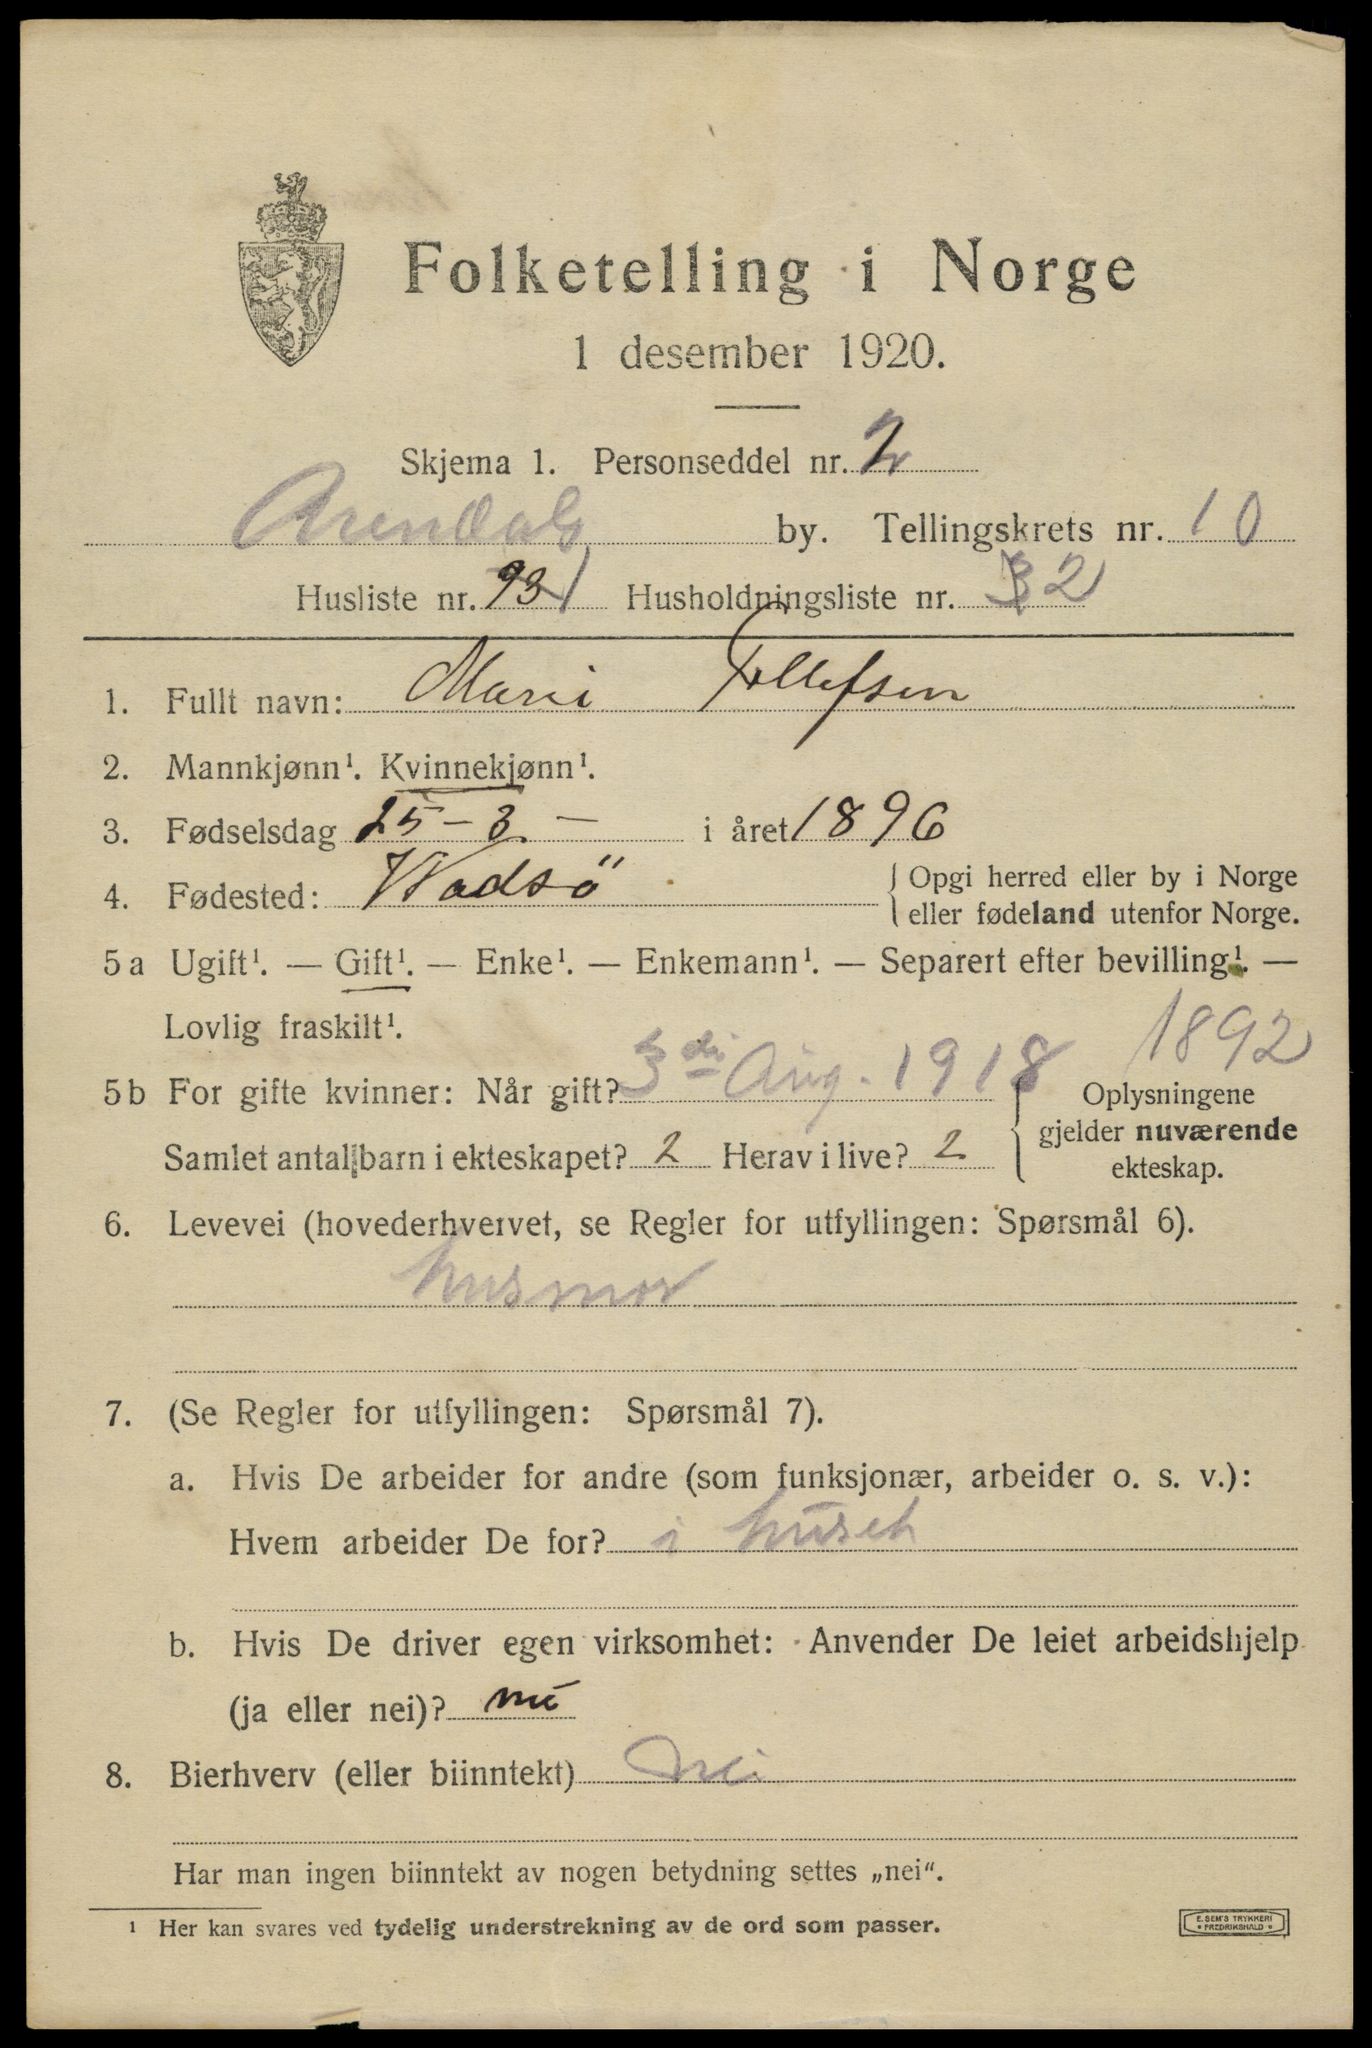 Folketelling i Norge
1 desember 1920.
Skjema 1. Personseddel nr. 2
Arendals by. Tellingskrets nr. 10
Husliste nr. 93 Husholdningsliste nr. 2
1. Fullt navn: Marie Tellefsen
2. Mannkjønn¹. Kvinnekjønn¹.
3. Fødselsdag 25-3- i året 1896
4. Fødested: Wadsö { Opgi herred eller by i Norge
eller fødeland utenfor Norge.
5a Ugift¹. — Gift¹. — Enke¹. — Enkemann¹. — Separert efter bevilling¹. —
Lovlig fraskilt¹.
1892
5b For gifte kvinner: Når gift? 3 Aug. 1918 { Oplysningene
gjelder nuværende
ekteskap.
Samlet antal barn i ekteskapet? 2 Herav i live? 2
6. Levevei (hovederhvervet, se Regler for utfyllingen: Spørsmål 6).
husmor
7. (Se Regler for utfyllingen: Spørsmål 7).
a. Hvis De arbeider for andre (som funksjonær, arbeider o. s. v.):
Hvem arbeider De for? i huset
b. Hvis De driver egen virksomhet: Anvender De leiet arbeidshjelp
(ja eller nei)? nei
8. Bierhverv (eller biinntekt) nei
Har man ingen biinntekt av nogen betydning settes „nei“.
¹ Her kan svares ved tydelig understrekning av de ord som passer.
E. SEM'S TRYKKERI
• FREDRIKSHALD •